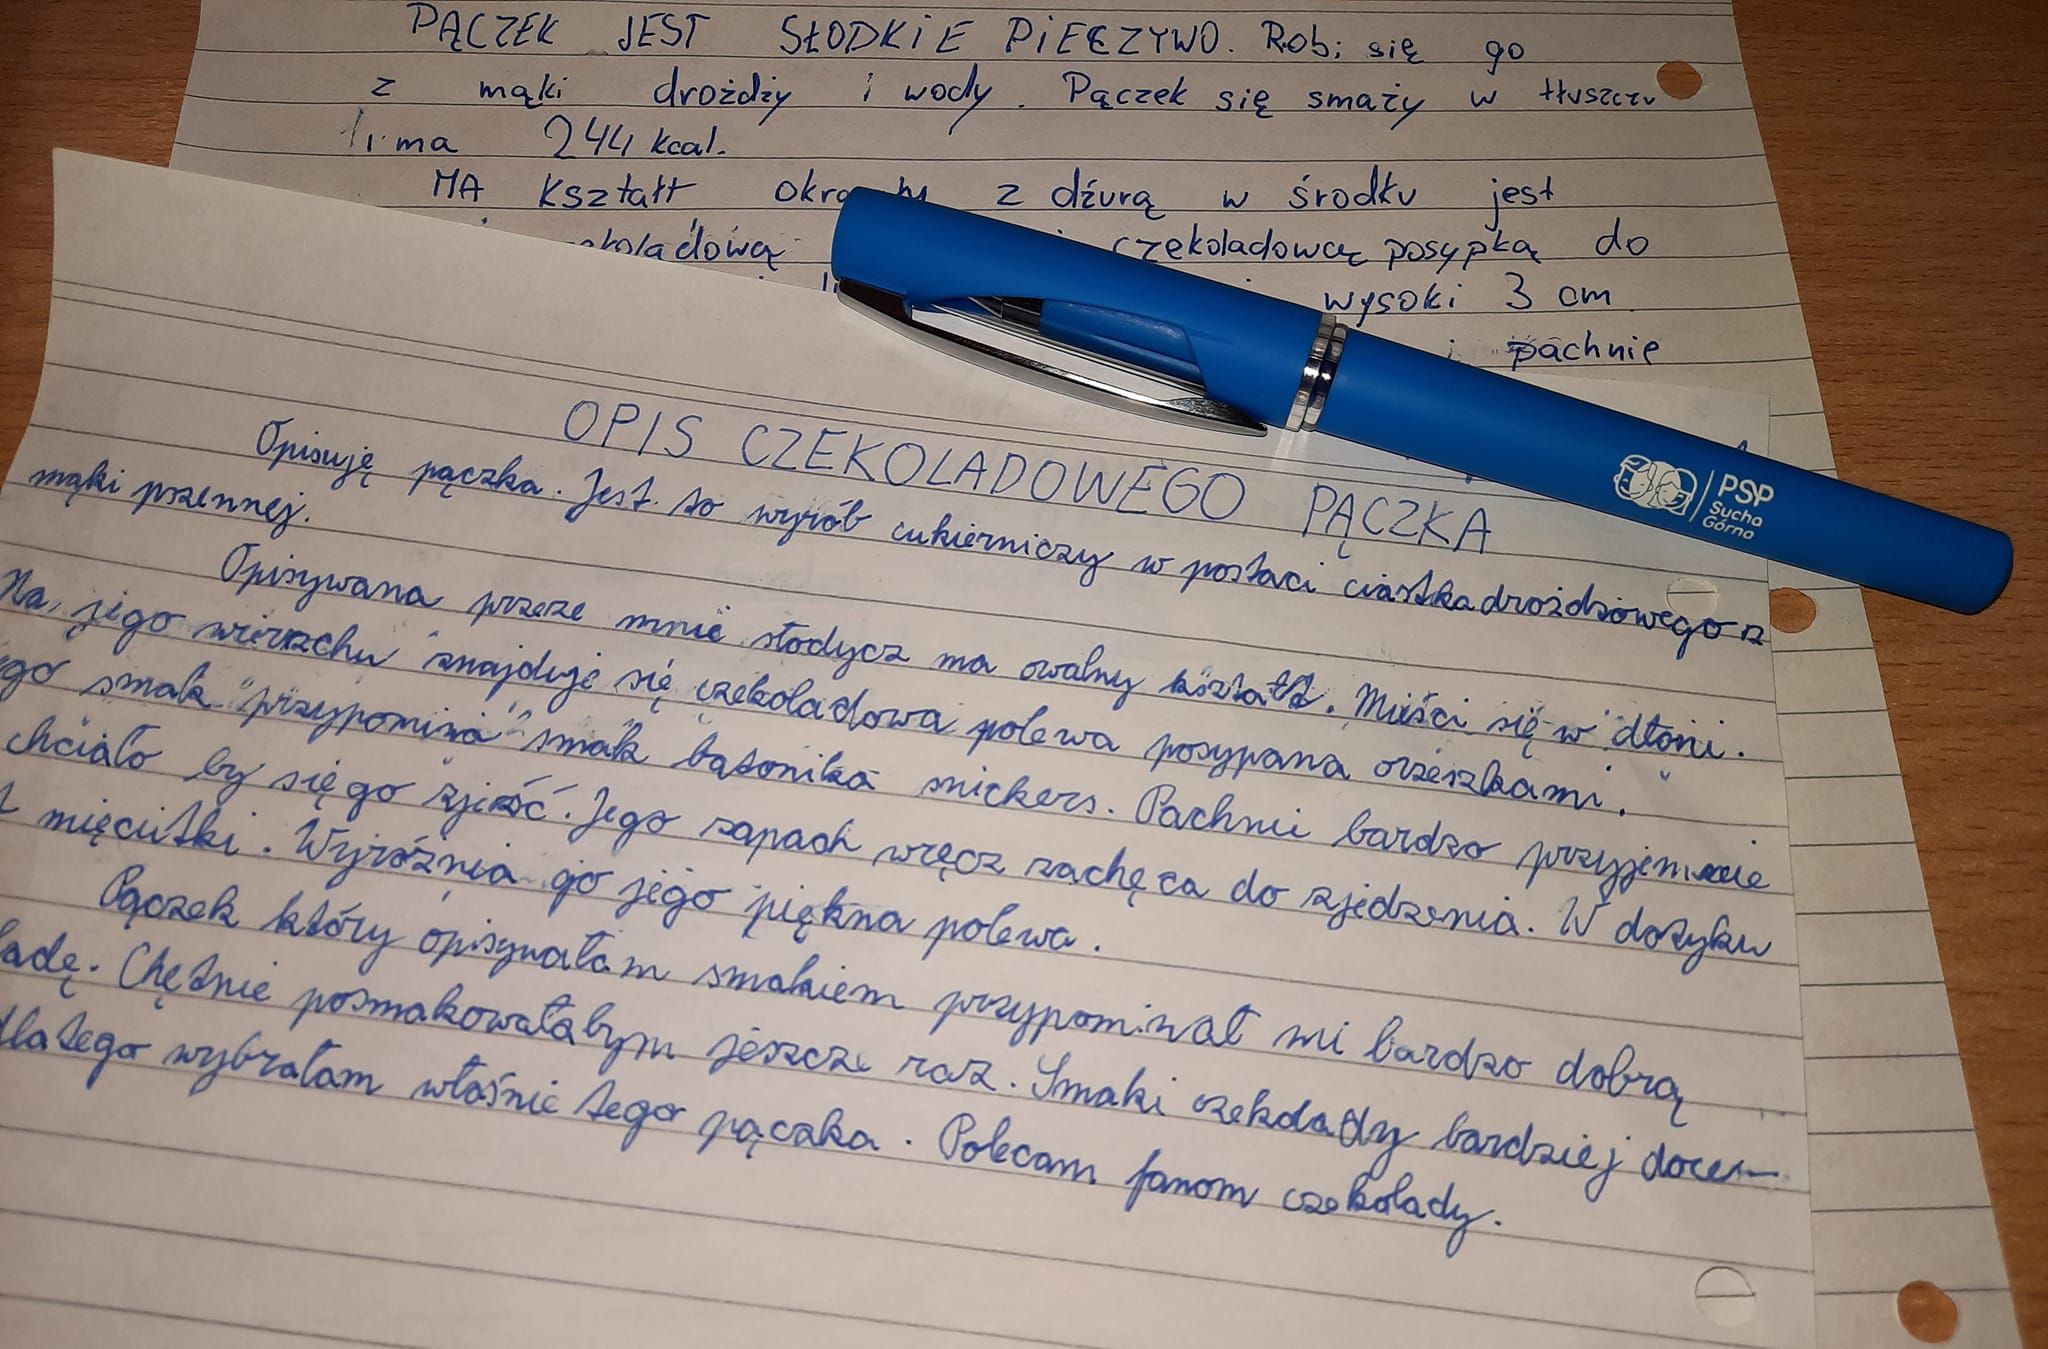 PĄCZEK JEST SŁODKIE PIECZYWO. Robi się go
z mąki drożdży i wody. Pączek się smaży w tłuszczu
i ma 244 kcal.
MA kształt z dźurą w środku jest
czekoladową posypką do
wysoki 3 cm
pachnie
OPIS CZEKOLADOWEGO PĄCZKA
Opisuję pączka. Jest to wyrób cukierniczy w postaci ciastka drożdżowego z
mąki pszennej.
Opisywana przeze mnie słodycz ma owalny kształt. Mieści się w dłoni.
Na jego wierzchu znajduje się czekoladowa polewa posypana orzeszkami.
smak przypomina smak batonika snickers. Pachnie bardzo przyjemnie
chciało by się go zjeść. Jego zapach wręcz zachęca do zjedzenia. W dotyku
mięciutki. Wyróżnia go jego piękna polewa.
Pączek który opisywałam smakiem przypominał mi bardzo dobrą
Chętnie posmakowałabym jeszcze raz. Smaki czekolady bardziej
dlatego wybrałam właśnie tego pączka. Polecam fanom czekolady.
PSP
Sucha
Górna